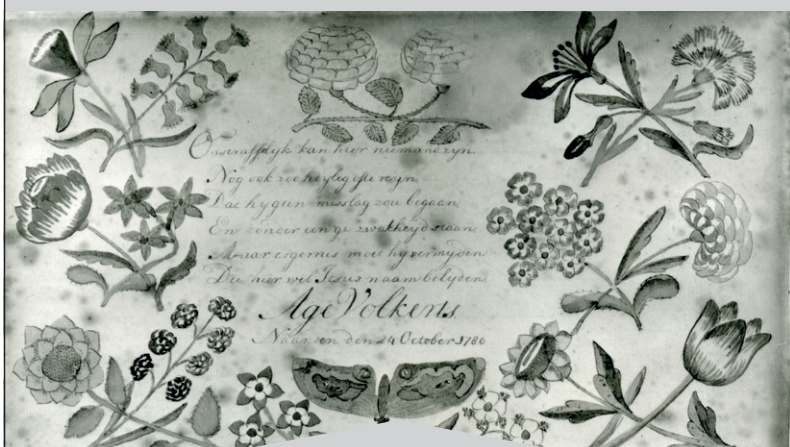 Onstraffelyk kan hier niemand zyn.
Nog ook zoo heyleg ofte reyn,
Dat hy geen misslag zou begaan
En zonder eenige zwakheyd staan.
Maar ergernis moet hy vermyden
Die hier wil Jesus naam belyden.
Age Volkerts
Naarden den 24 October 1780